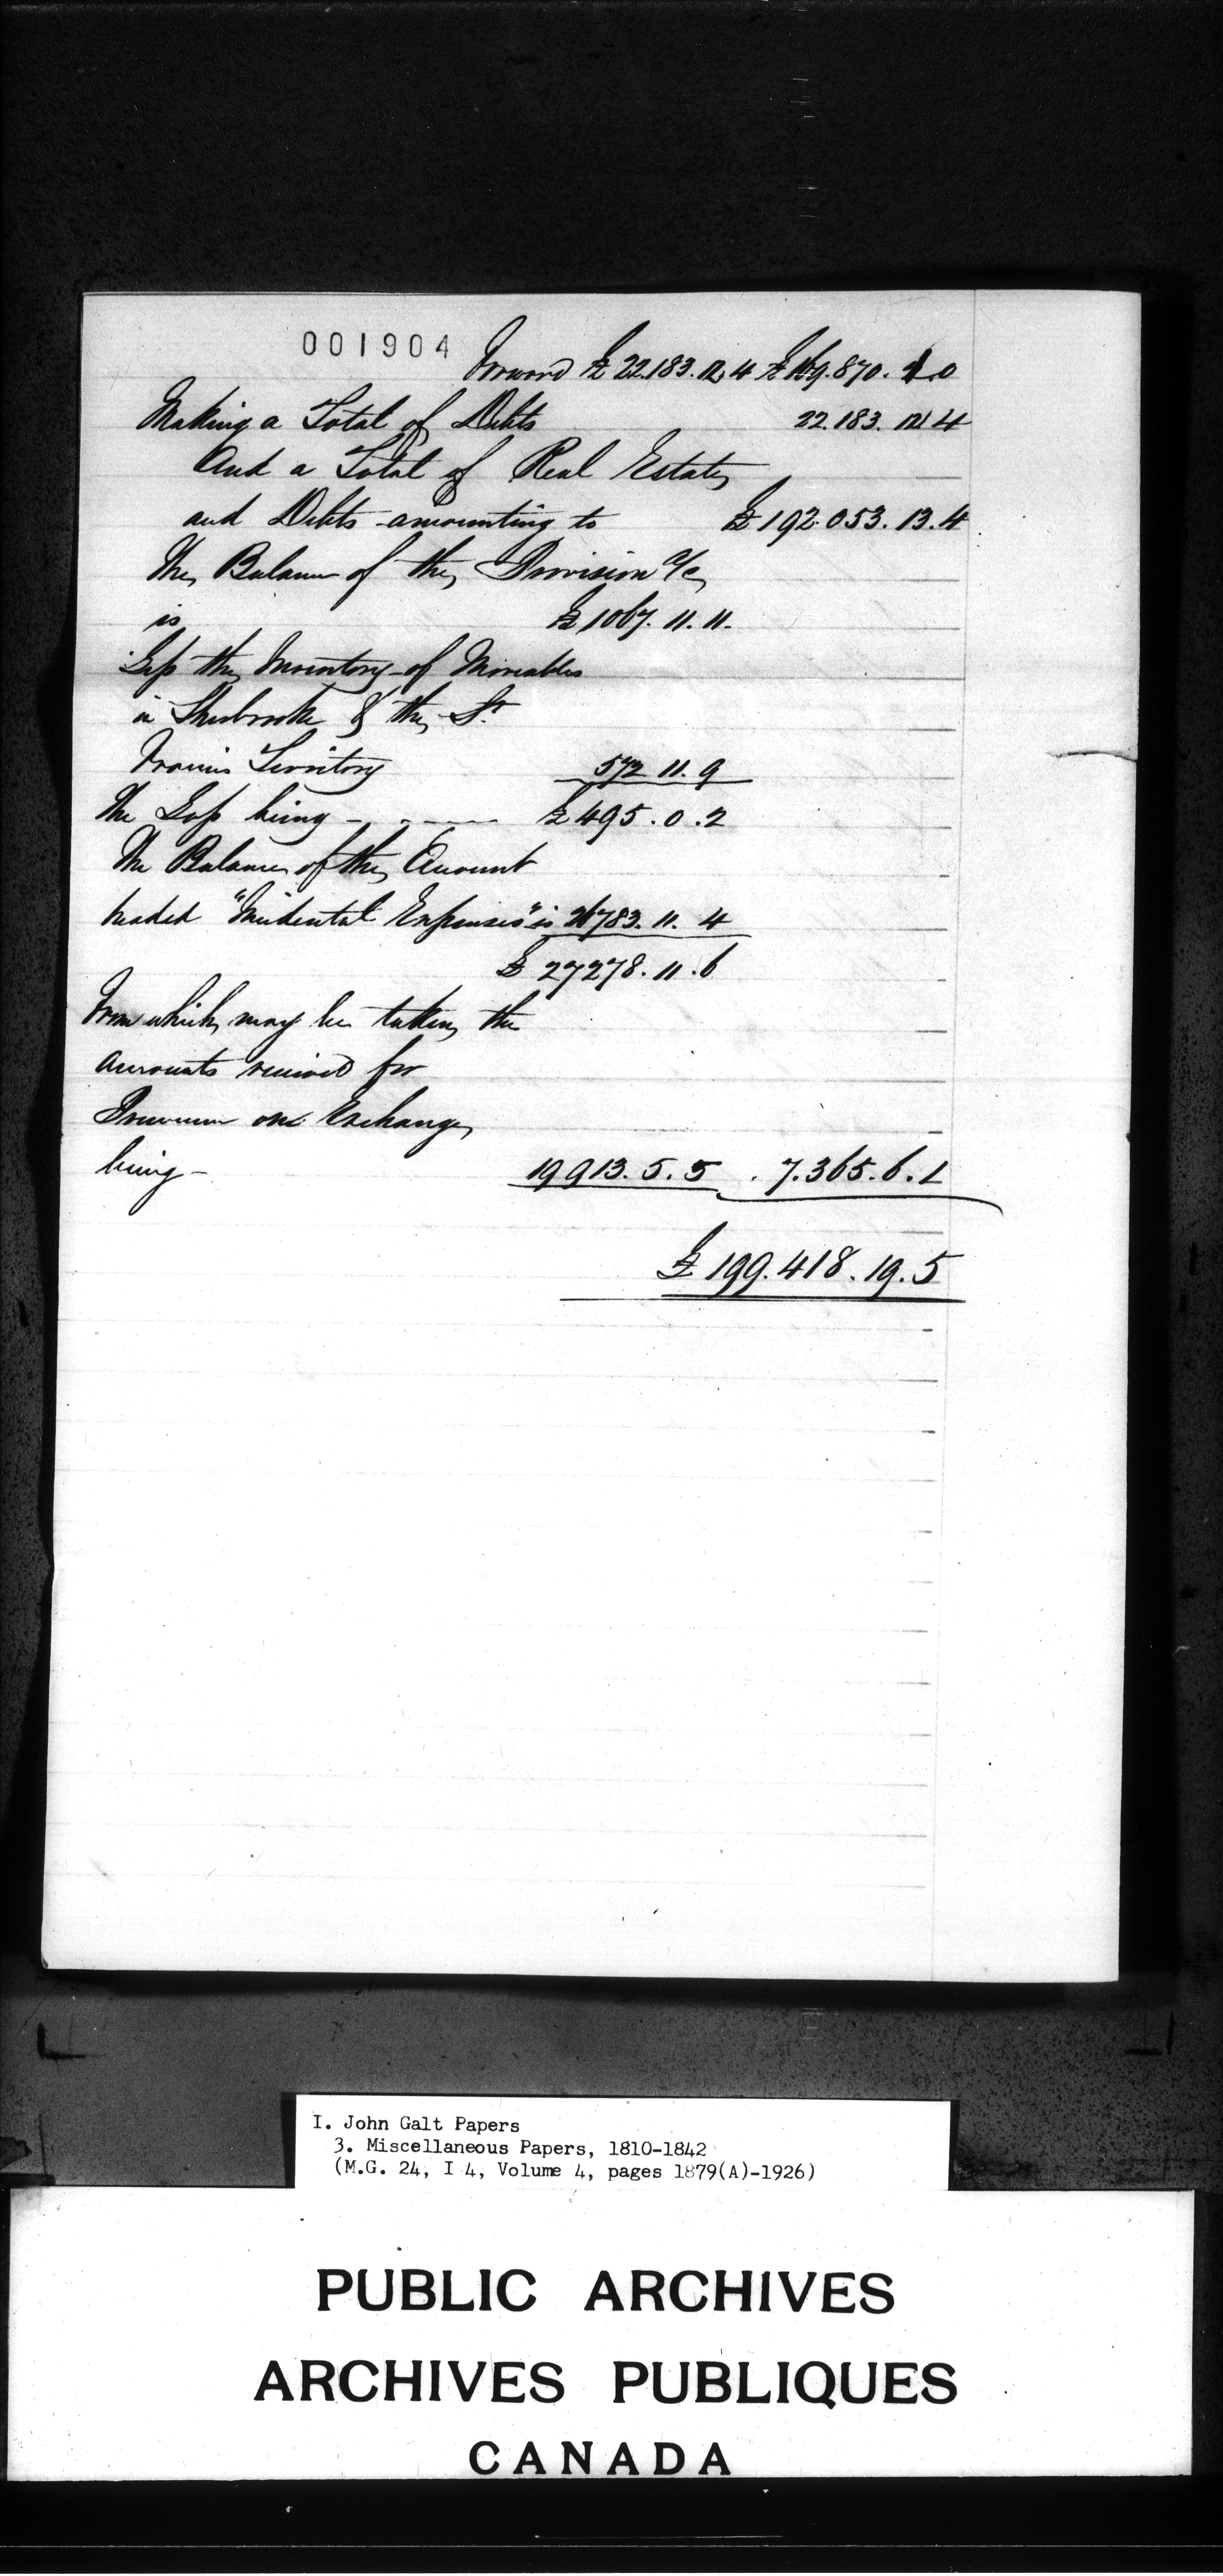 001904
Forward £ 22.183.12.4 £ 169.870.1.0
Making a Total of Debts 22.183.12.4
And a Total of Real Estate
and Debts amounting to £ 192.053.13.4
The Balance of the Provision a/c
is £ 1067.11.11.
Less the Inventory of Moveables
in Sherbrooke & the St.
Francis Territory 572 11.9
The Loss being - £ 495.0.2
The Balance of the Account
headed "Incidental Expenses" is 26783.11.4
£ 27278.11.6
From which may be taken the
amounts received for
Premium on Exchange
being - 19913.5.5 . 7.365.6.1
£ 199.418.19.5
I. John Galt Papers
3. Miscellaneous Papers, 1810-1842
(M.G. 24, I 4, Volume 4, pages 1879(A)-1926)
PUBLIC ARCHIVES
ARCHIVES PUBLIQUES
CANADA